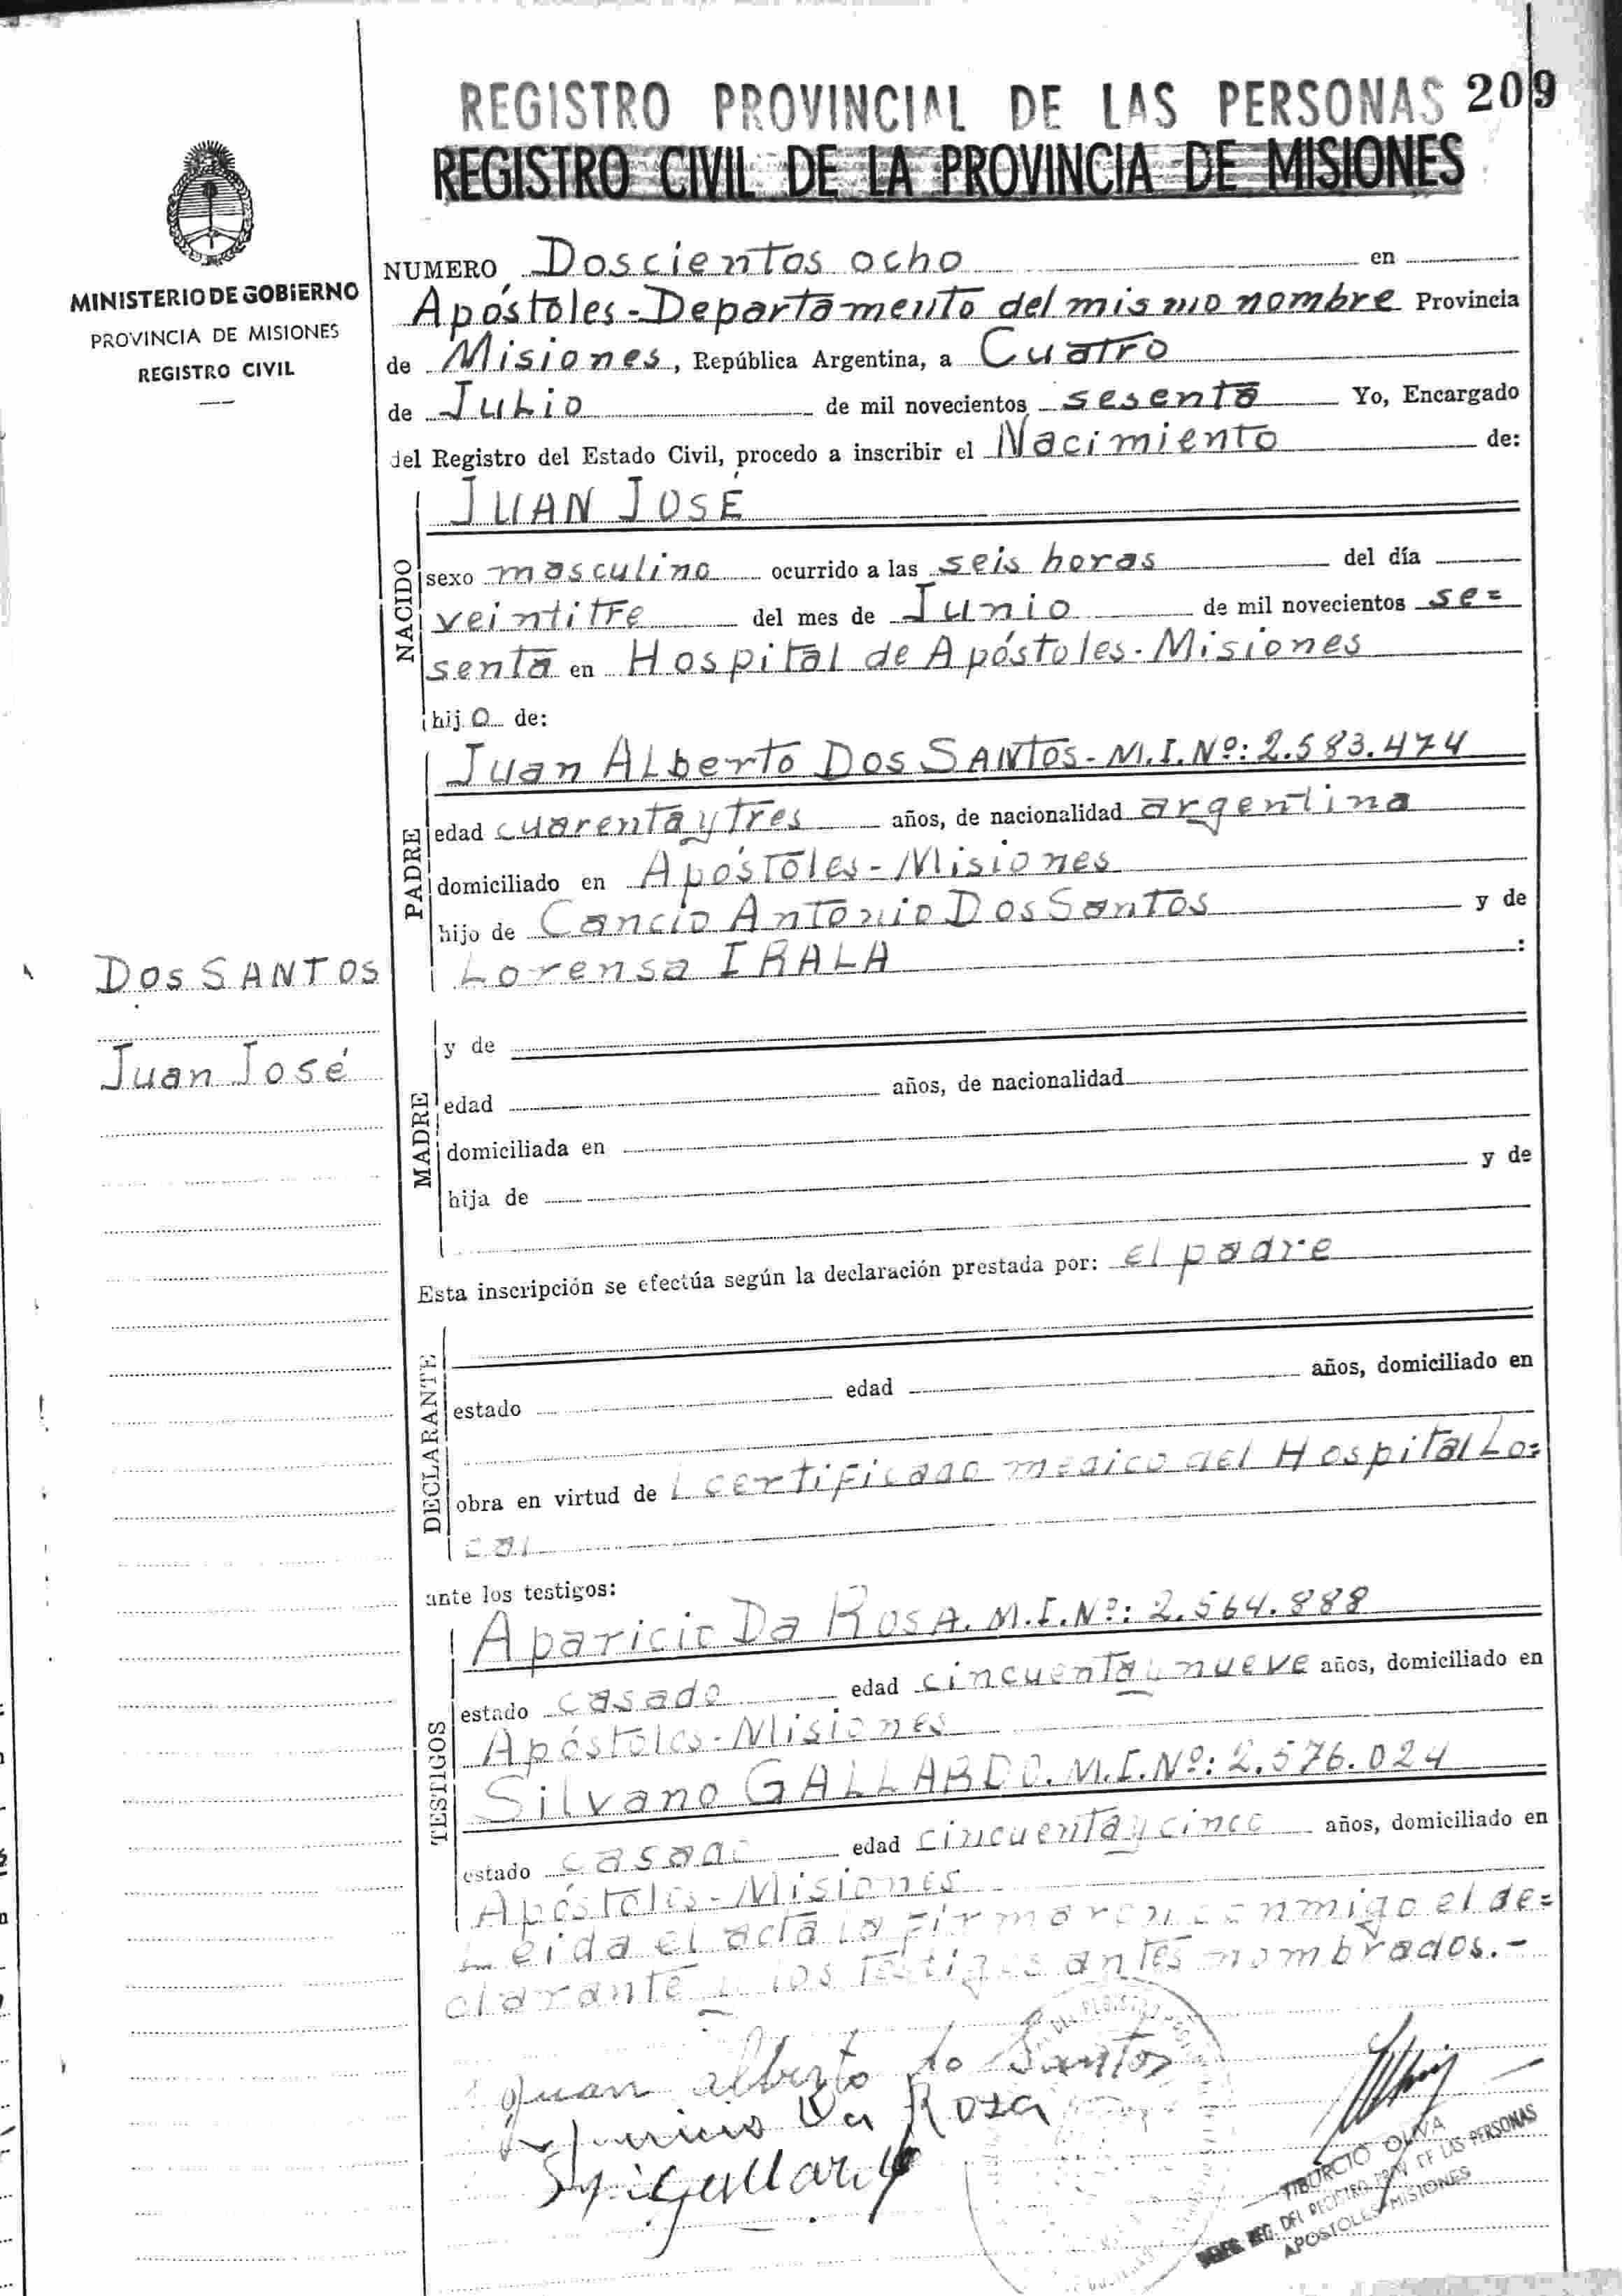 REGISTRO PROVINCIAL DE LAS PERSONAS 209
REGISTRO CIVIL DE LA PROVINCIA DE MISIONES
MINISTERIO DE GOBIERNO
PROVINCIA DE MISIONES
REGISTRO CIVIL
NUMERO Doscientos ocho en
Apóstoles-Departamento del mismo nombre Provincia
de Misiones, República Argentina, a Cuatro
de Julio de mil novecientos sesenta Yo, Encargado
del Registro del Estado Civil, procedo a inscribir el Nacimiento de:
NACIDO
JUAN JOSÉ
sexo masculino ocurrido a las seis horas del día
veintitre del mes de Junio de mil novecientos se=
senta en Hospital de Apóstoles-Misiones
hijo de:
PADRE
Juan ALberto Dos SANTOS-M.I.Nº:2.583.474
edad cuarenta y tres años, de nacionalidad argentina
domiciliado en Apóstoles-Misiones
hijo de Cancio Antonio Dos Santos y de
Lorensa IRALA :
Dos SANTOS
Juan José
MADRE
y de
edad años, de nacionalidad
domiciliada en
hija de y de
Esta inscripción se efectúa según la declaración prestada por: el padre
DECLARANTE
estado edad años, domiciliado en
obra en virtud del certificado medico del Hospital Lo=
cal
ante los testigos:
TESTIGOS
Aparicio Da Rosa. M.I.Nº: 2.564.888
estado casado edad cincuenta y nueve años, domiciliado en
Apóstoles-Misiones
Silvano GALLARDO. M.I.Nº: 2.576.024
estado casado edad cincuenta y cinco años, domiciliado en
Apóstoles-Misiones
Leida el acta la firmaron conmigo el de=
clarante y los testigos antes nombrados.-
Juan alberto do Santos
Aparicio Da Roza
Gallardo
TIBURCIO OLIVA
REG. DEL REGISTRO PROV. DE LAS PERSONAS
APOSTOLES-MISIONES